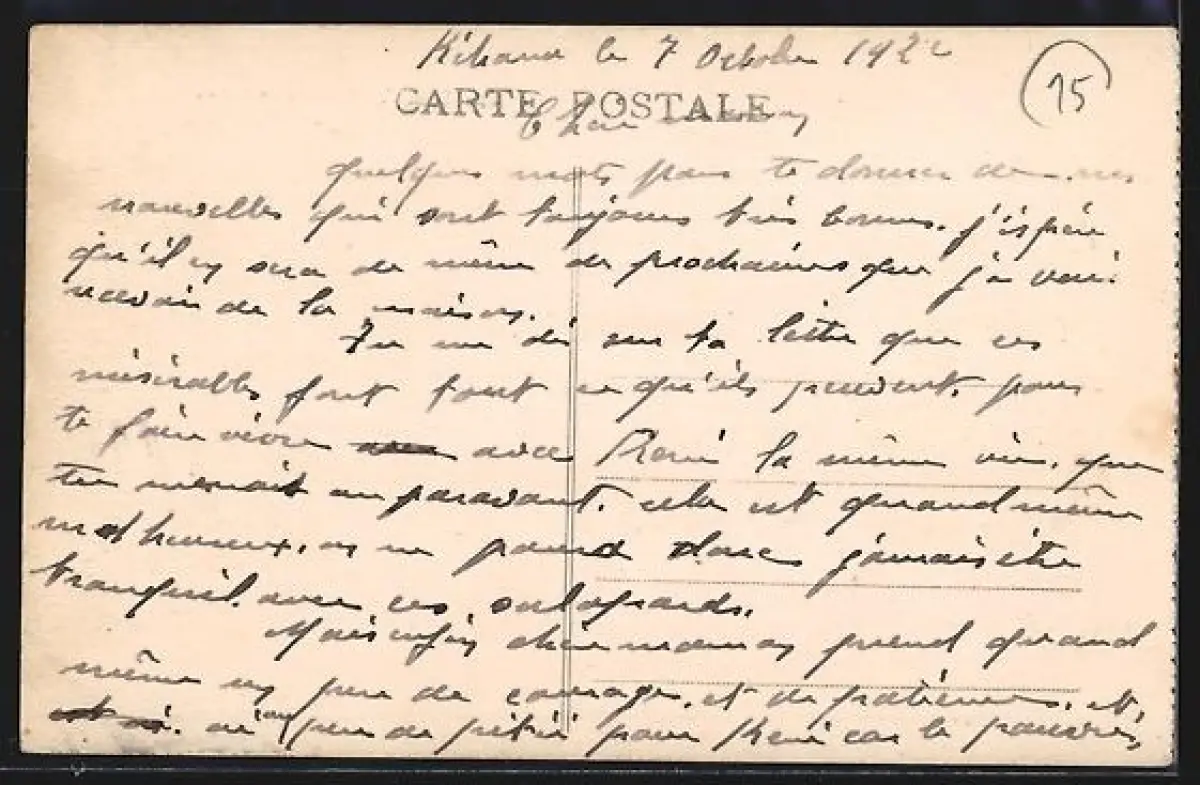 le 7 Octobre 1922
15
CARTE POSTALE
Chère maman
quelques mots pour te donner de mes
nouvelles qui sont toujours très bonnes. j'espère
qu'il en sera de même de prochaines que je vais
de la maison.
Tu me dis sur ta lettre que ces
misérables font tout ce qu'ils peuvent, pour
te faire vivre avec René la même vie, que
tu menait au paravant. cela est quand même
malheureux, on ne poura donc jamais être
tranquil. avec ces, salopards.
Mais enfin chère maman prend quand
même un peu de courage, et de patience, et,
ai un peu de pitié pour René car le pauvre,